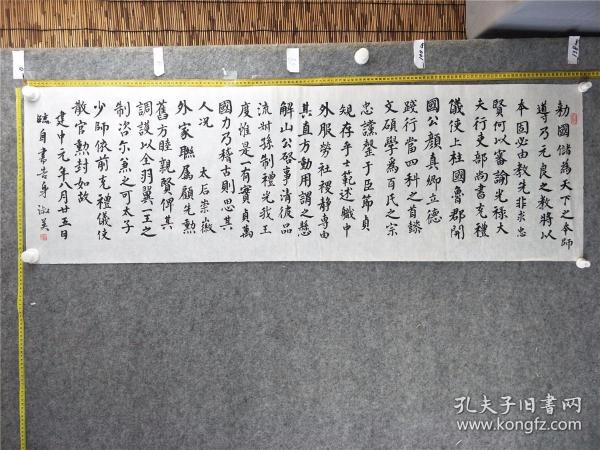 勅國儲為天下之本師
導乃元良之教將以
本固必由教先非求忠
賢何以審諭光禄大
夫行吏部尚書充禮
儀使上柱國魯郡開
國公顏真卿立德
踐行當四科之首懿
文碩學為百氏之宗
忠讜罄于臣節貞
規存乎士範述職中
外服勞社稷静專由
其直方動用謂之懸
解山公啓事清彼品
流叔孫制禮光我王
度惟是一有實貞萬
國力乃稽古則思其
人况 太后崇徽
外家聯屬顧先勲
舊方睦親賢俾其
調護以全羽翼一王之
制咨尔兼之可太子
少師依前充禮儀使
散官勲封如故
建中元年八月廿五日
臨自書告身 淑英
孔夫子旧书网
www.kongfz.com